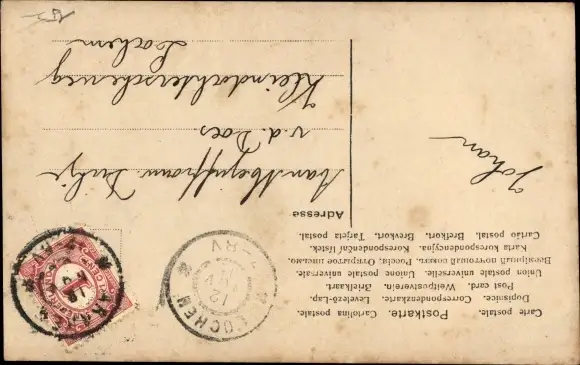 Carte postale. Postkarte. Cartolina postale.
Dopisnice. Correspondenzkarte. Levelező-Lap.
Post card. Weltpostverein. Briefkaart.
Union postale universelle. Unione postale universale.
Всемірный почтовый союзъ. Россія. Открытое письмо.
Karta korespondencyjna. Korespondenční lístek.
Cartão postal. Brefkort. Brevkort. Tarjeta postal.
Adresse
Johan
Aan Mejuffrouw
v.d. Does
Kleindochterscheweg
Lochem
LOCHEM
12
1